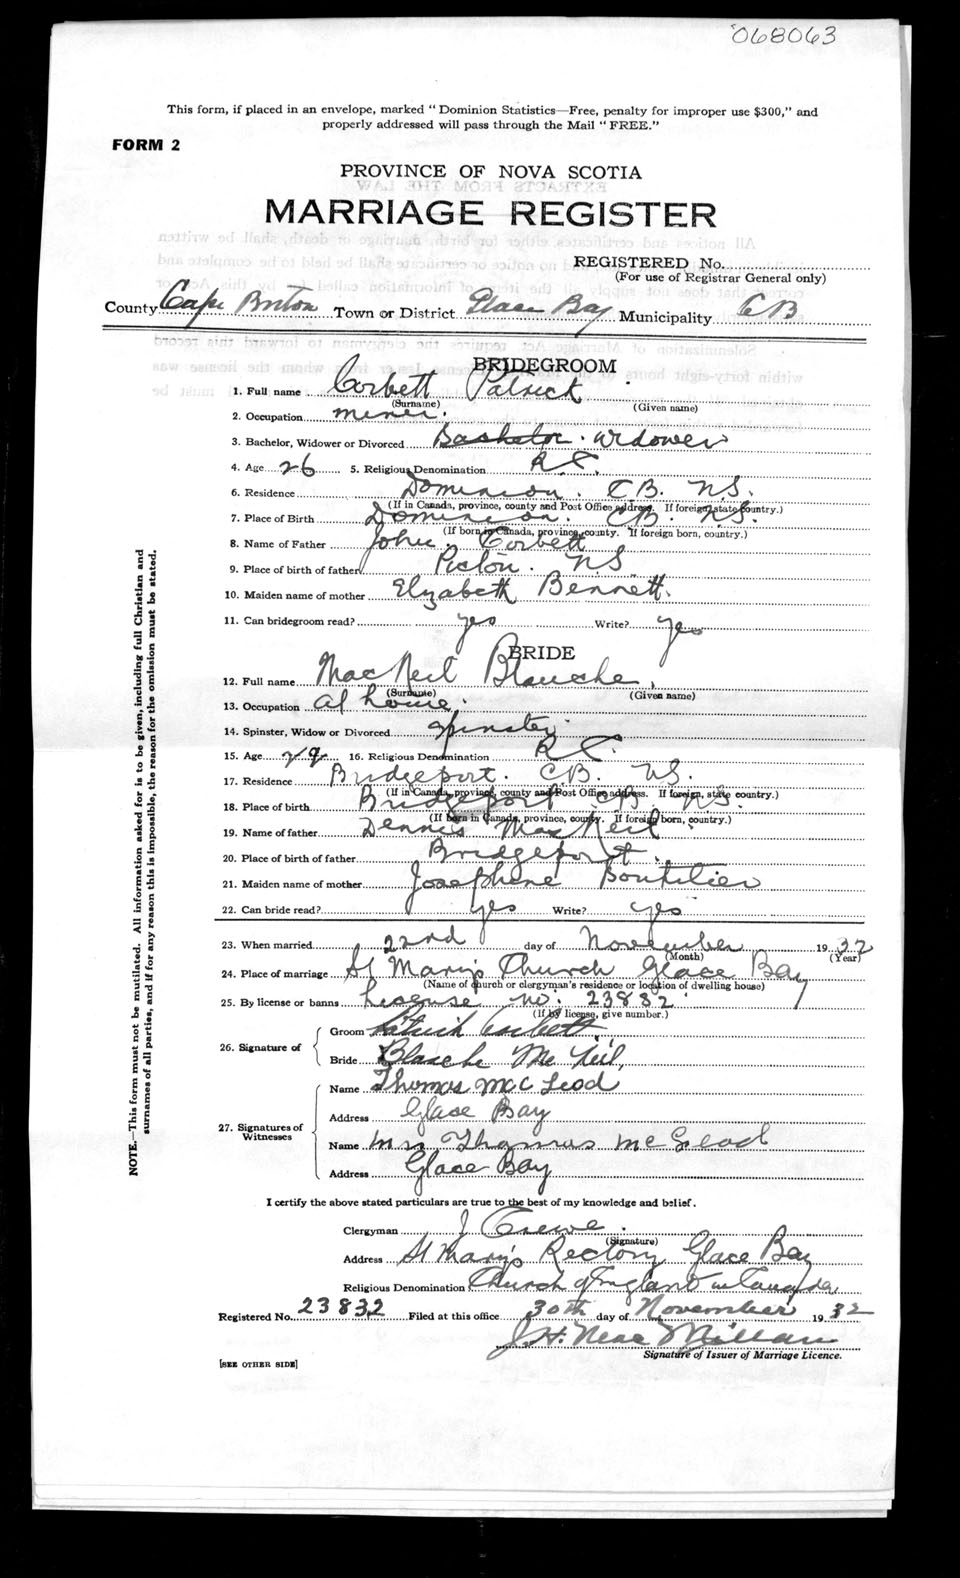 068063
This form, if placed in an envelope, marked "Dominion Statistics—Free, penalty for improper use $300," and
properly addressed will pass through the Mail "FREE."
FORM 2
PROVINCE OF NOVA SCOTIA
MARRIAGE REGISTER
REGISTERED No.
(For use of Registrar General only)
County Cape Breton Town or District Glace Bay Municipality C B
BRIDEGROOM
1. Full name Corbett Patrick
(Surname) (Given name)
2. Occupation miner.
3. Bachelor, Widower or Divorced Bachelor. widower
4. Age 26 5. Religious Denomination R C.
6. Residence Dominion. CB. NS.
(If in Canada, province, county and Post Office address. If foreign, state country.)
7. Place of Birth Dominion. CB. NS.
(If born in Canada, province, county. If foreign born, country.)
8. Name of Father John Corbett
9. Place of birth of father Pictou. NS
10. Maiden name of mother Elizabeth Bennett.
11. Can bridegroom read? yes Write? yes
BRIDE
12. Full name MacNeil Blanche,
(Surname) (Given name)
13. Occupation at home.
14. Spinster, Widow or Divorced spinster
15. Age 29 16. Religious Denomination R C.
17. Residence Bridgeport. CB. NS.
(If in Canada, province, county and Post Office address. If foreign, state country.)
18. Place of birth Bridgeport CB NS.
(If born in Canada, province, county. If foreign born, country.)
19. Name of father Dennis MacNeil
20. Place of birth of father Bridgeport.
21. Maiden name of mother Josephene Boutilier
22. Can bride read? yes Write? yes
23. When married 22nd day of November 1932
(Month) (Year)
24. Place of marriage St Mary's Church Glace Bay
(Name of church or clergyman's residence or location of dwelling house)
25. By license or banns License no. 23832
(If by license, give number.)
26. Signature of
Groom Patrick Corbett
Bride Blanche Mc Neil,
27. Signatures of Witnesses
Name Thomas McC Leod
Address Glace Bay
Name Mrs Thomas McLeod
Address Glace Bay
I certify the above stated particulars are true to the best of my knowledge and belief.
Clergyman J Crewe.
(Signature)
Address St Mary's Rectory Glace Bay
Religious Denomination Church of England in Canada
Registered No. 23832 Filed at this office 30th day of November 1932
J. H. MacMillan
Signature of Issuer of Marriage Licence.
[SEE OTHER SIDE]
NOTE.—This form must not be mutilated. All information asked for is to be given, including full Christian and
surnames of all parties, and if for any reason this is impossible, the reason for the omission must be stated.